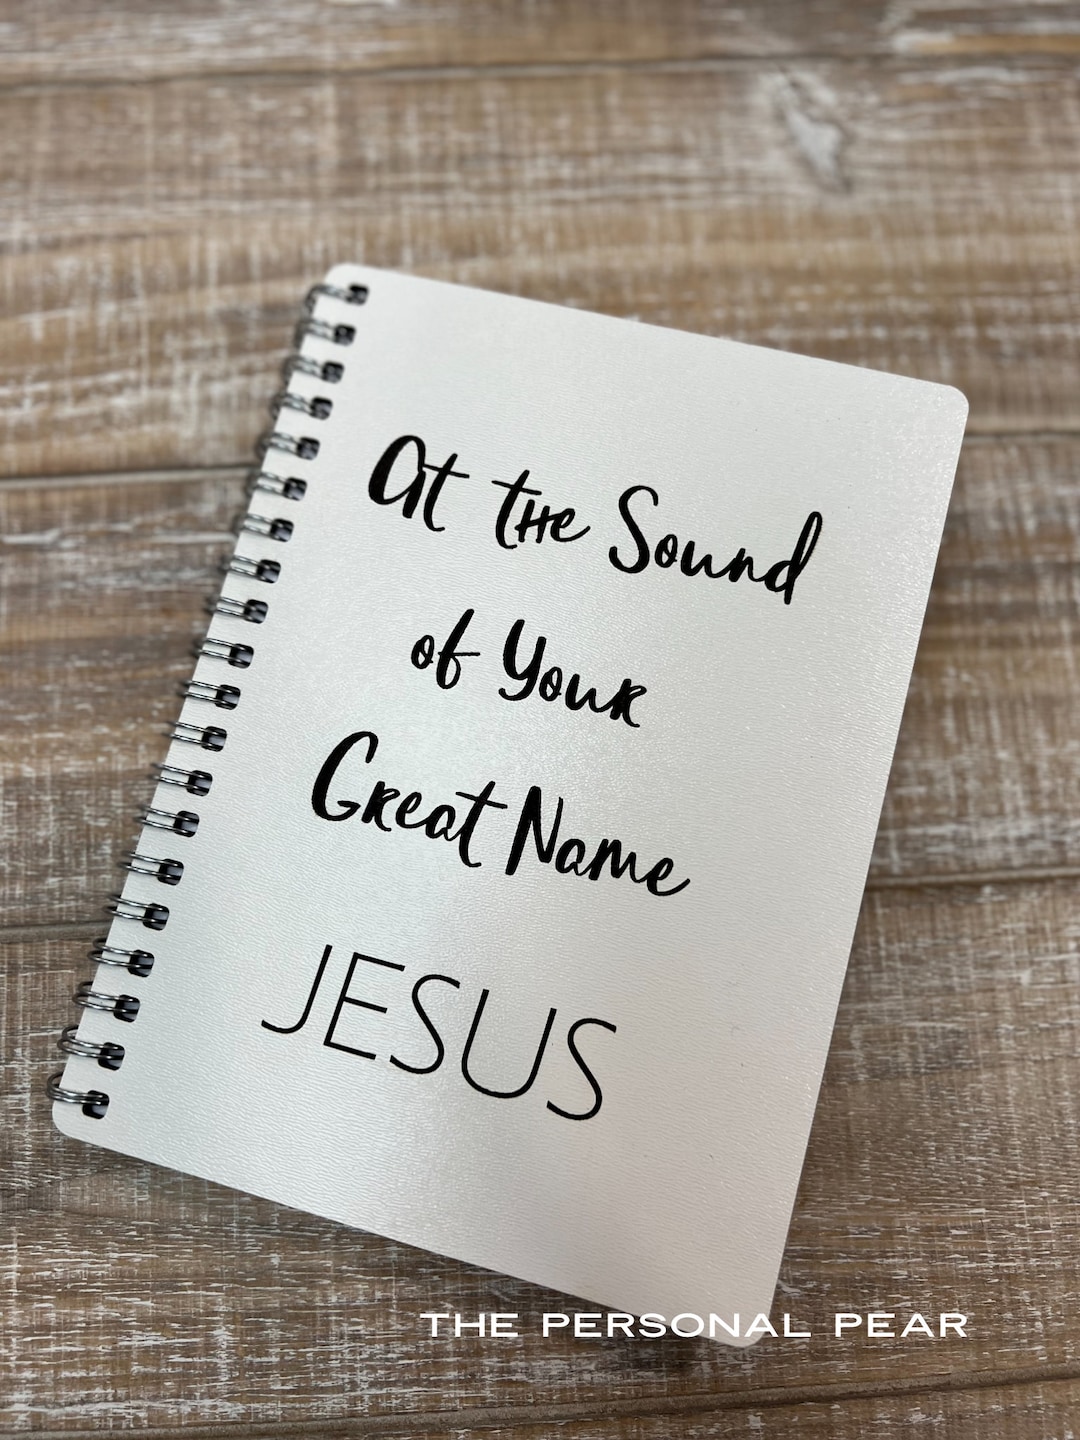 At the Sound
of Your
Great Name
JESUS
THE PERSONAL PEAR